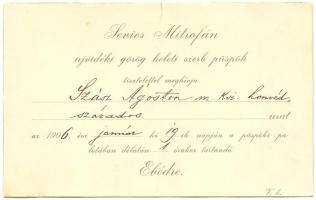 Sevics Mitrofán
ujvidéki görög keleti szerb püspök
tisztelettel meghivja
Szász Ágoston m. kir. honvéd
százados urat
az 1906 évi január hó 19-ik napján a püspöki pa-
lotában délután 1 órakor tartandó
Ebédre.